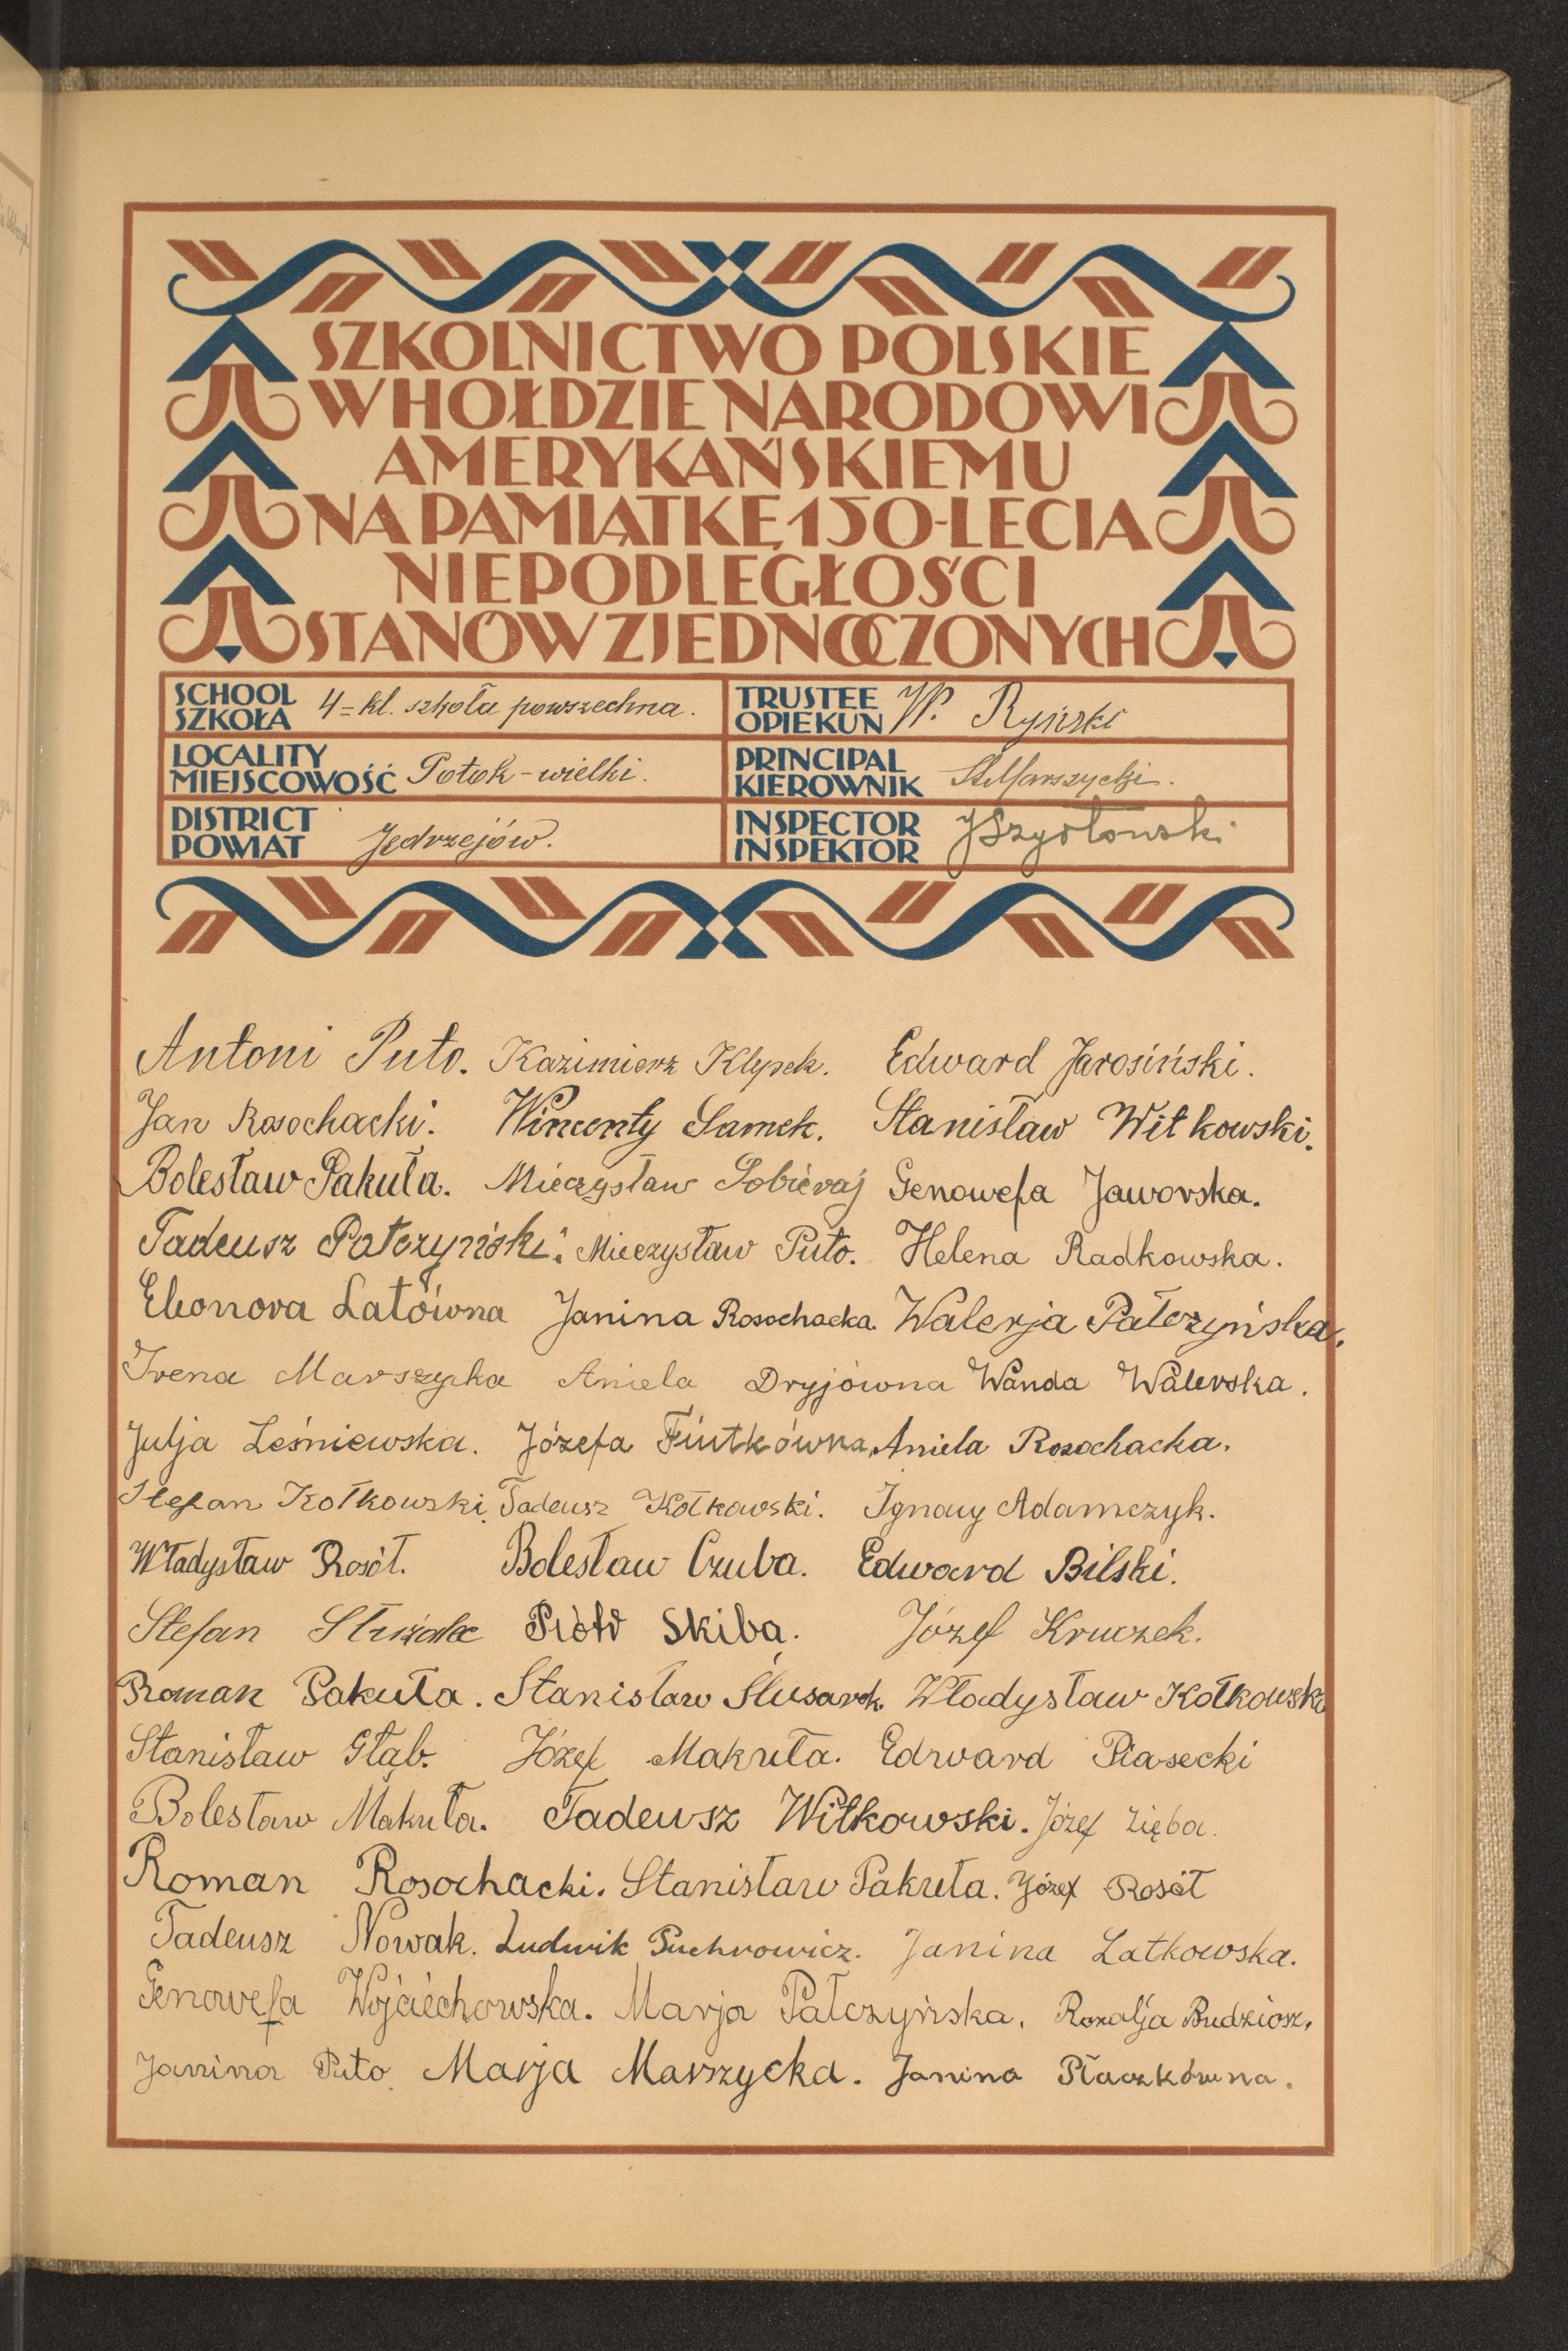 SZKOLNICTWO POLSKIE
W HOŁDZIE NARODOWI
AMERYKAŃSKIEMU
NA PAMIĄTKĘ 150-LECIA
NIEPODLEGŁOŚCI
STANÓW ZJEDNOCZONYCH
SCHOOL
SZKOŁA 4=kl. szkoła powszechna.
TRUSTEE
OPIEKUN W. Ryński
LOCALITY
MIEJSCOWOŚĆ Potok-wielki.
PRINCIPAL
KIEROWNIK St Marszycki.
DISTRICT
POWIAT Jędrzejów.
INSPECTOR
INSPEKTOR JSzydłowski
Antoni Puto. Kazimierz Klępek. Edward Jarosiński.
Jan Rosochacki. Wincenty Samek. Stanisław Witkowski.
Bolesław Pakuła. Mieczysław Sobieraj Genowefa Jaworska.
Tadeusz Pałczyński. Mieczysław Puto. Helena Radkowska.
Eleonora Latówna Janina Rosochacka. Walerja Pałczyńska.
Irena Marszycka Aniela Dryjówna Wanda Walerska.
Julja Leśniewska. Józefa Fiutkówna Aniela Rosochacka.
Stefan Kołkowski. Tadeusz Kołkowski. Ignacy Adamczyk.
Władysław Rosół. Bolesław Czuba. Edward Bilski.
Stefan Piotr Skiba. Józef Kruczek.
Roman Pakuła. Stanisław Ślusarek. Władysław Kołkowski
Stanisław Głąb. Józef Makuła. Edward Piasecki
Bolesław Makuła. Tadeusz Witkowski. Józef Zięba.
Roman Rosochacki. Stanisław Pakuła. Józef Rosół
Tadeusz Nowak. Ludwik Puchrowicz. Janina Latkowska.
Genowefa Wojciechowska. Marja Pałczyńska. Rozalja Budziosz.
Janina Puto. Marja Marszycka. Janina Płaczkówna.